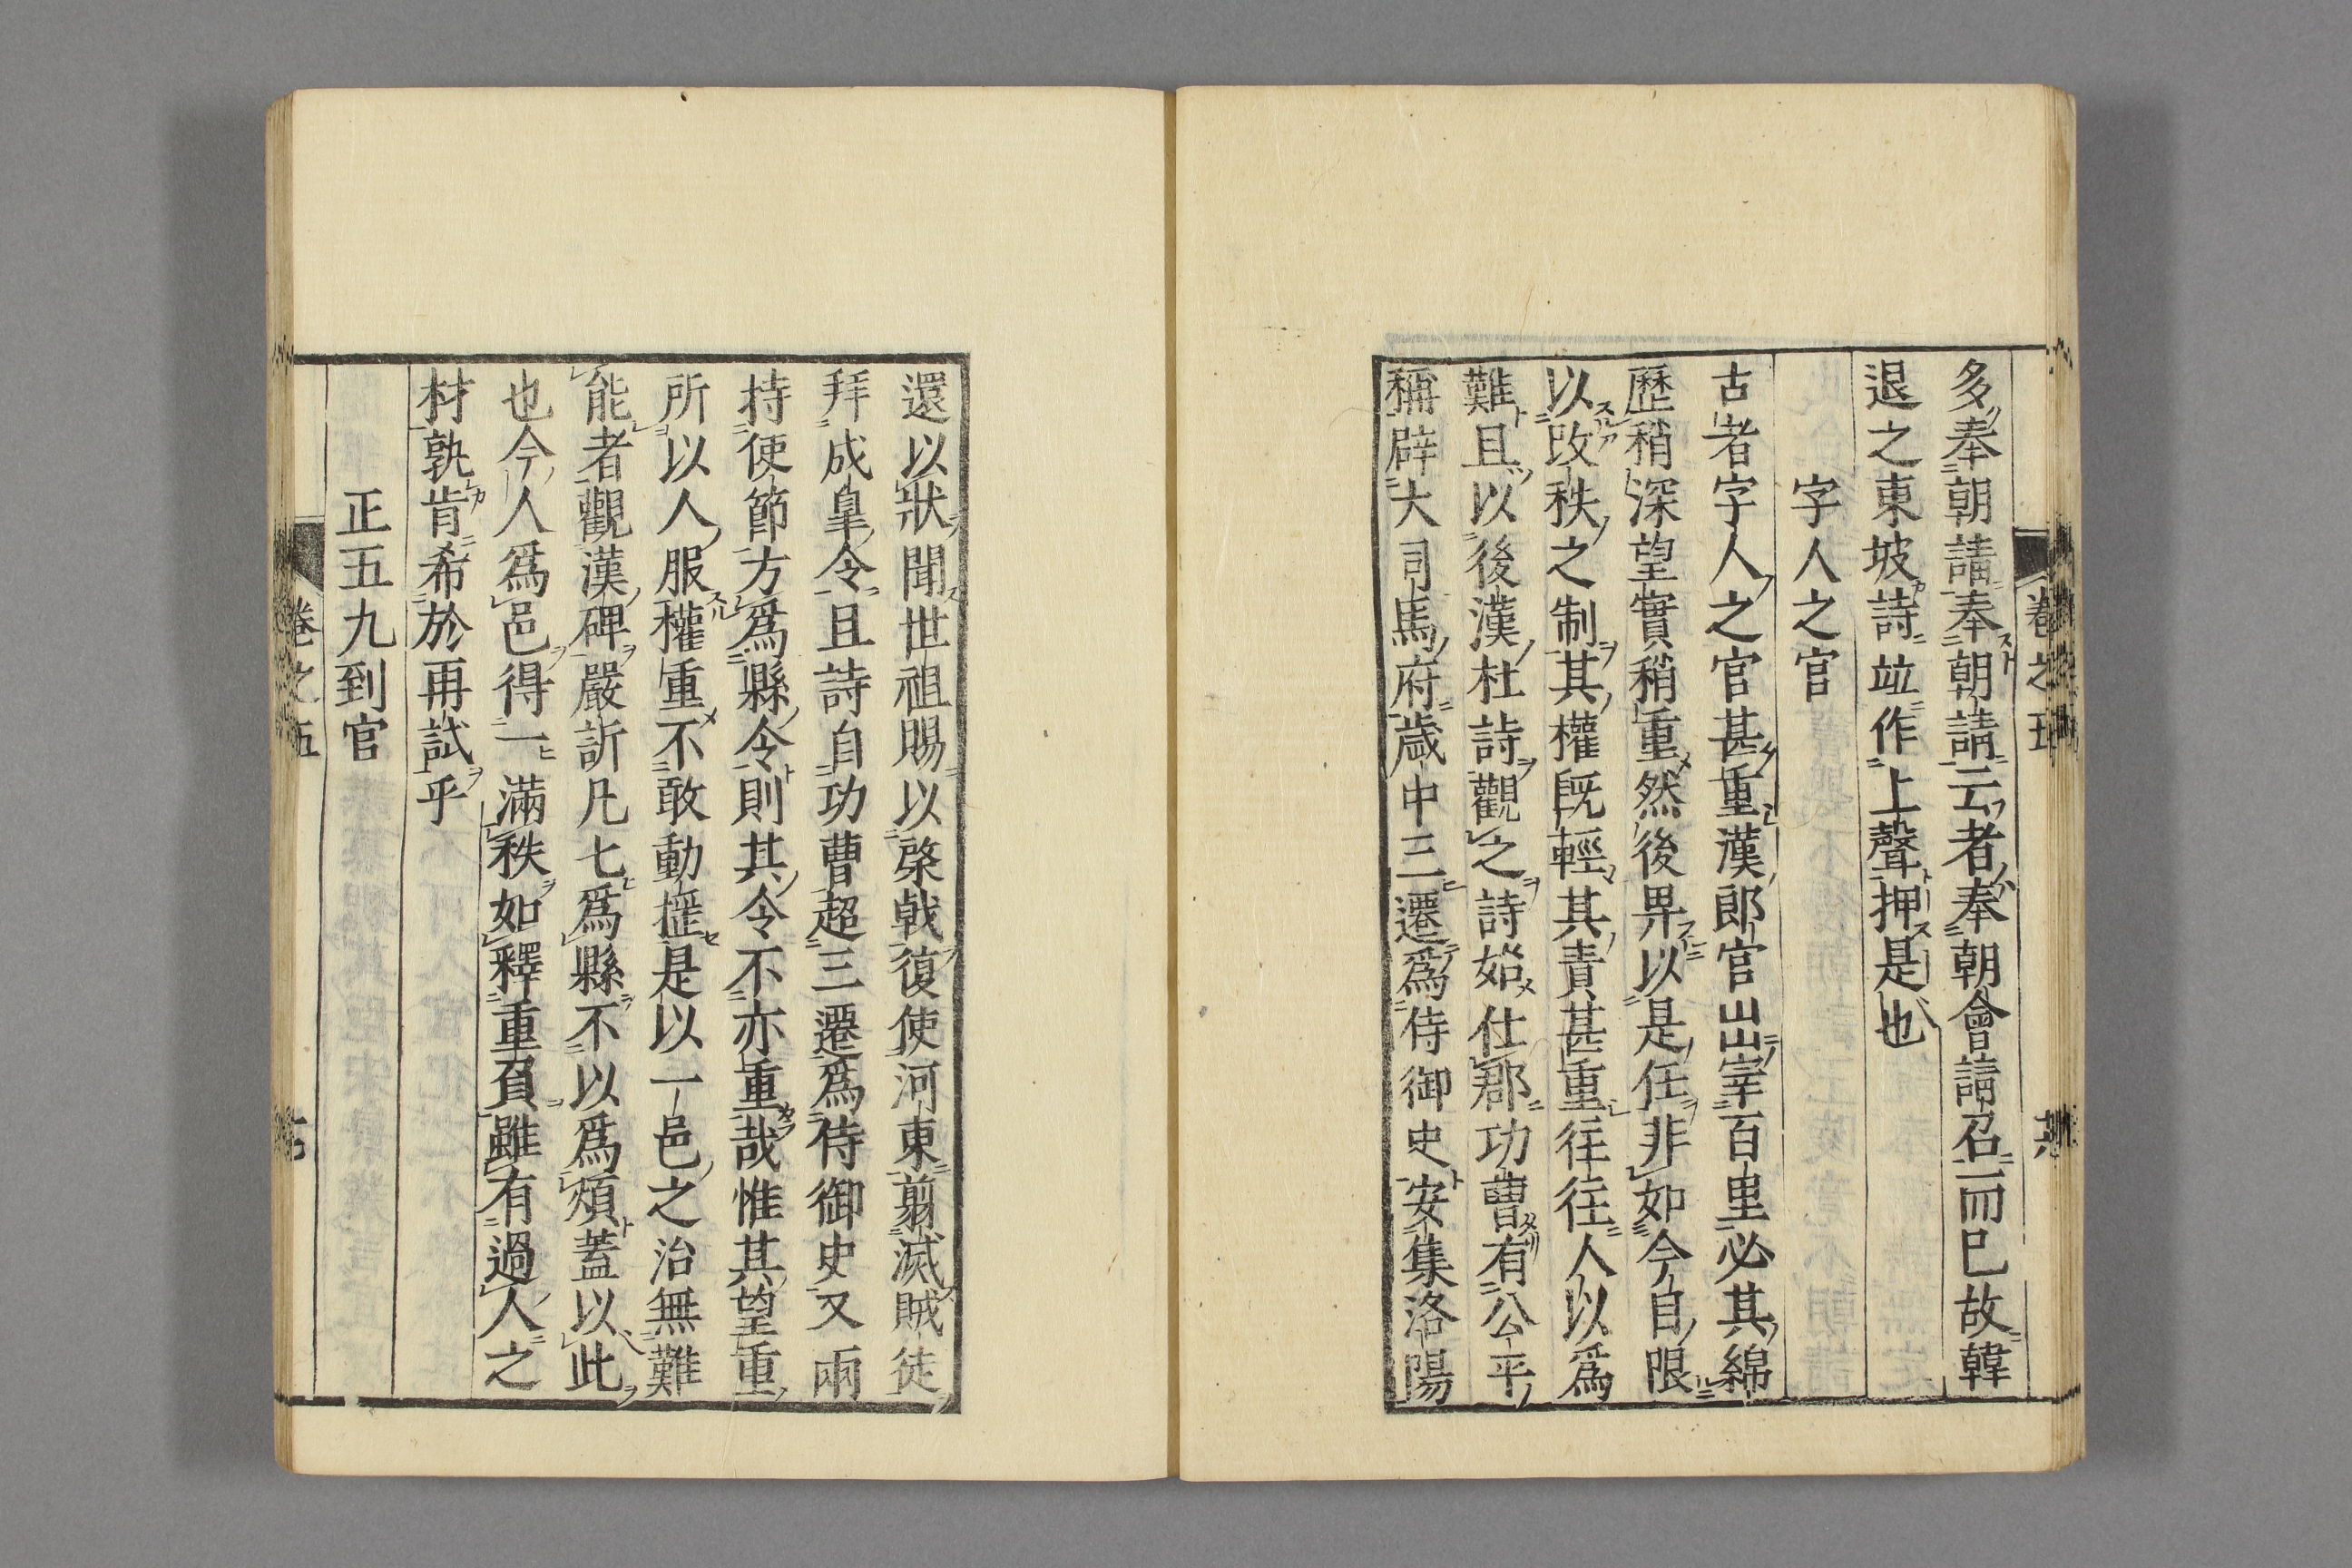 多奉朝請奉朝請云者奉朝會請召而已故韓
退之東坡詩竝作上聲押是也
字人之官
古者字人之官甚重漢郎官出宰百里必其綿
歷稍深望實稍重然後畀以是任非如今自限
以改秩之制其權既輕其責甚重往往人以爲
難且以後漢杜詩觀之詩始仕郡功曹有公平
稱辟大司馬府歲中三遷爲侍御史安集洛陽
還以狀聞世祖賜以棨戟復使河東翦滅賊徒
拜成臯令且詩自功曹超三遷爲侍御史又兩
持使節方爲縣令則其令不亦重哉惟其望重
所以人服權重不敢動搖是以一邑之治無難
能者觀漢碑嚴訢凡七爲縣不以爲煩蓋以此
也今人爲邑得一滿秩如釋重負雖有過人之
材孰肯希於再試乎
正五九到官
卷之五